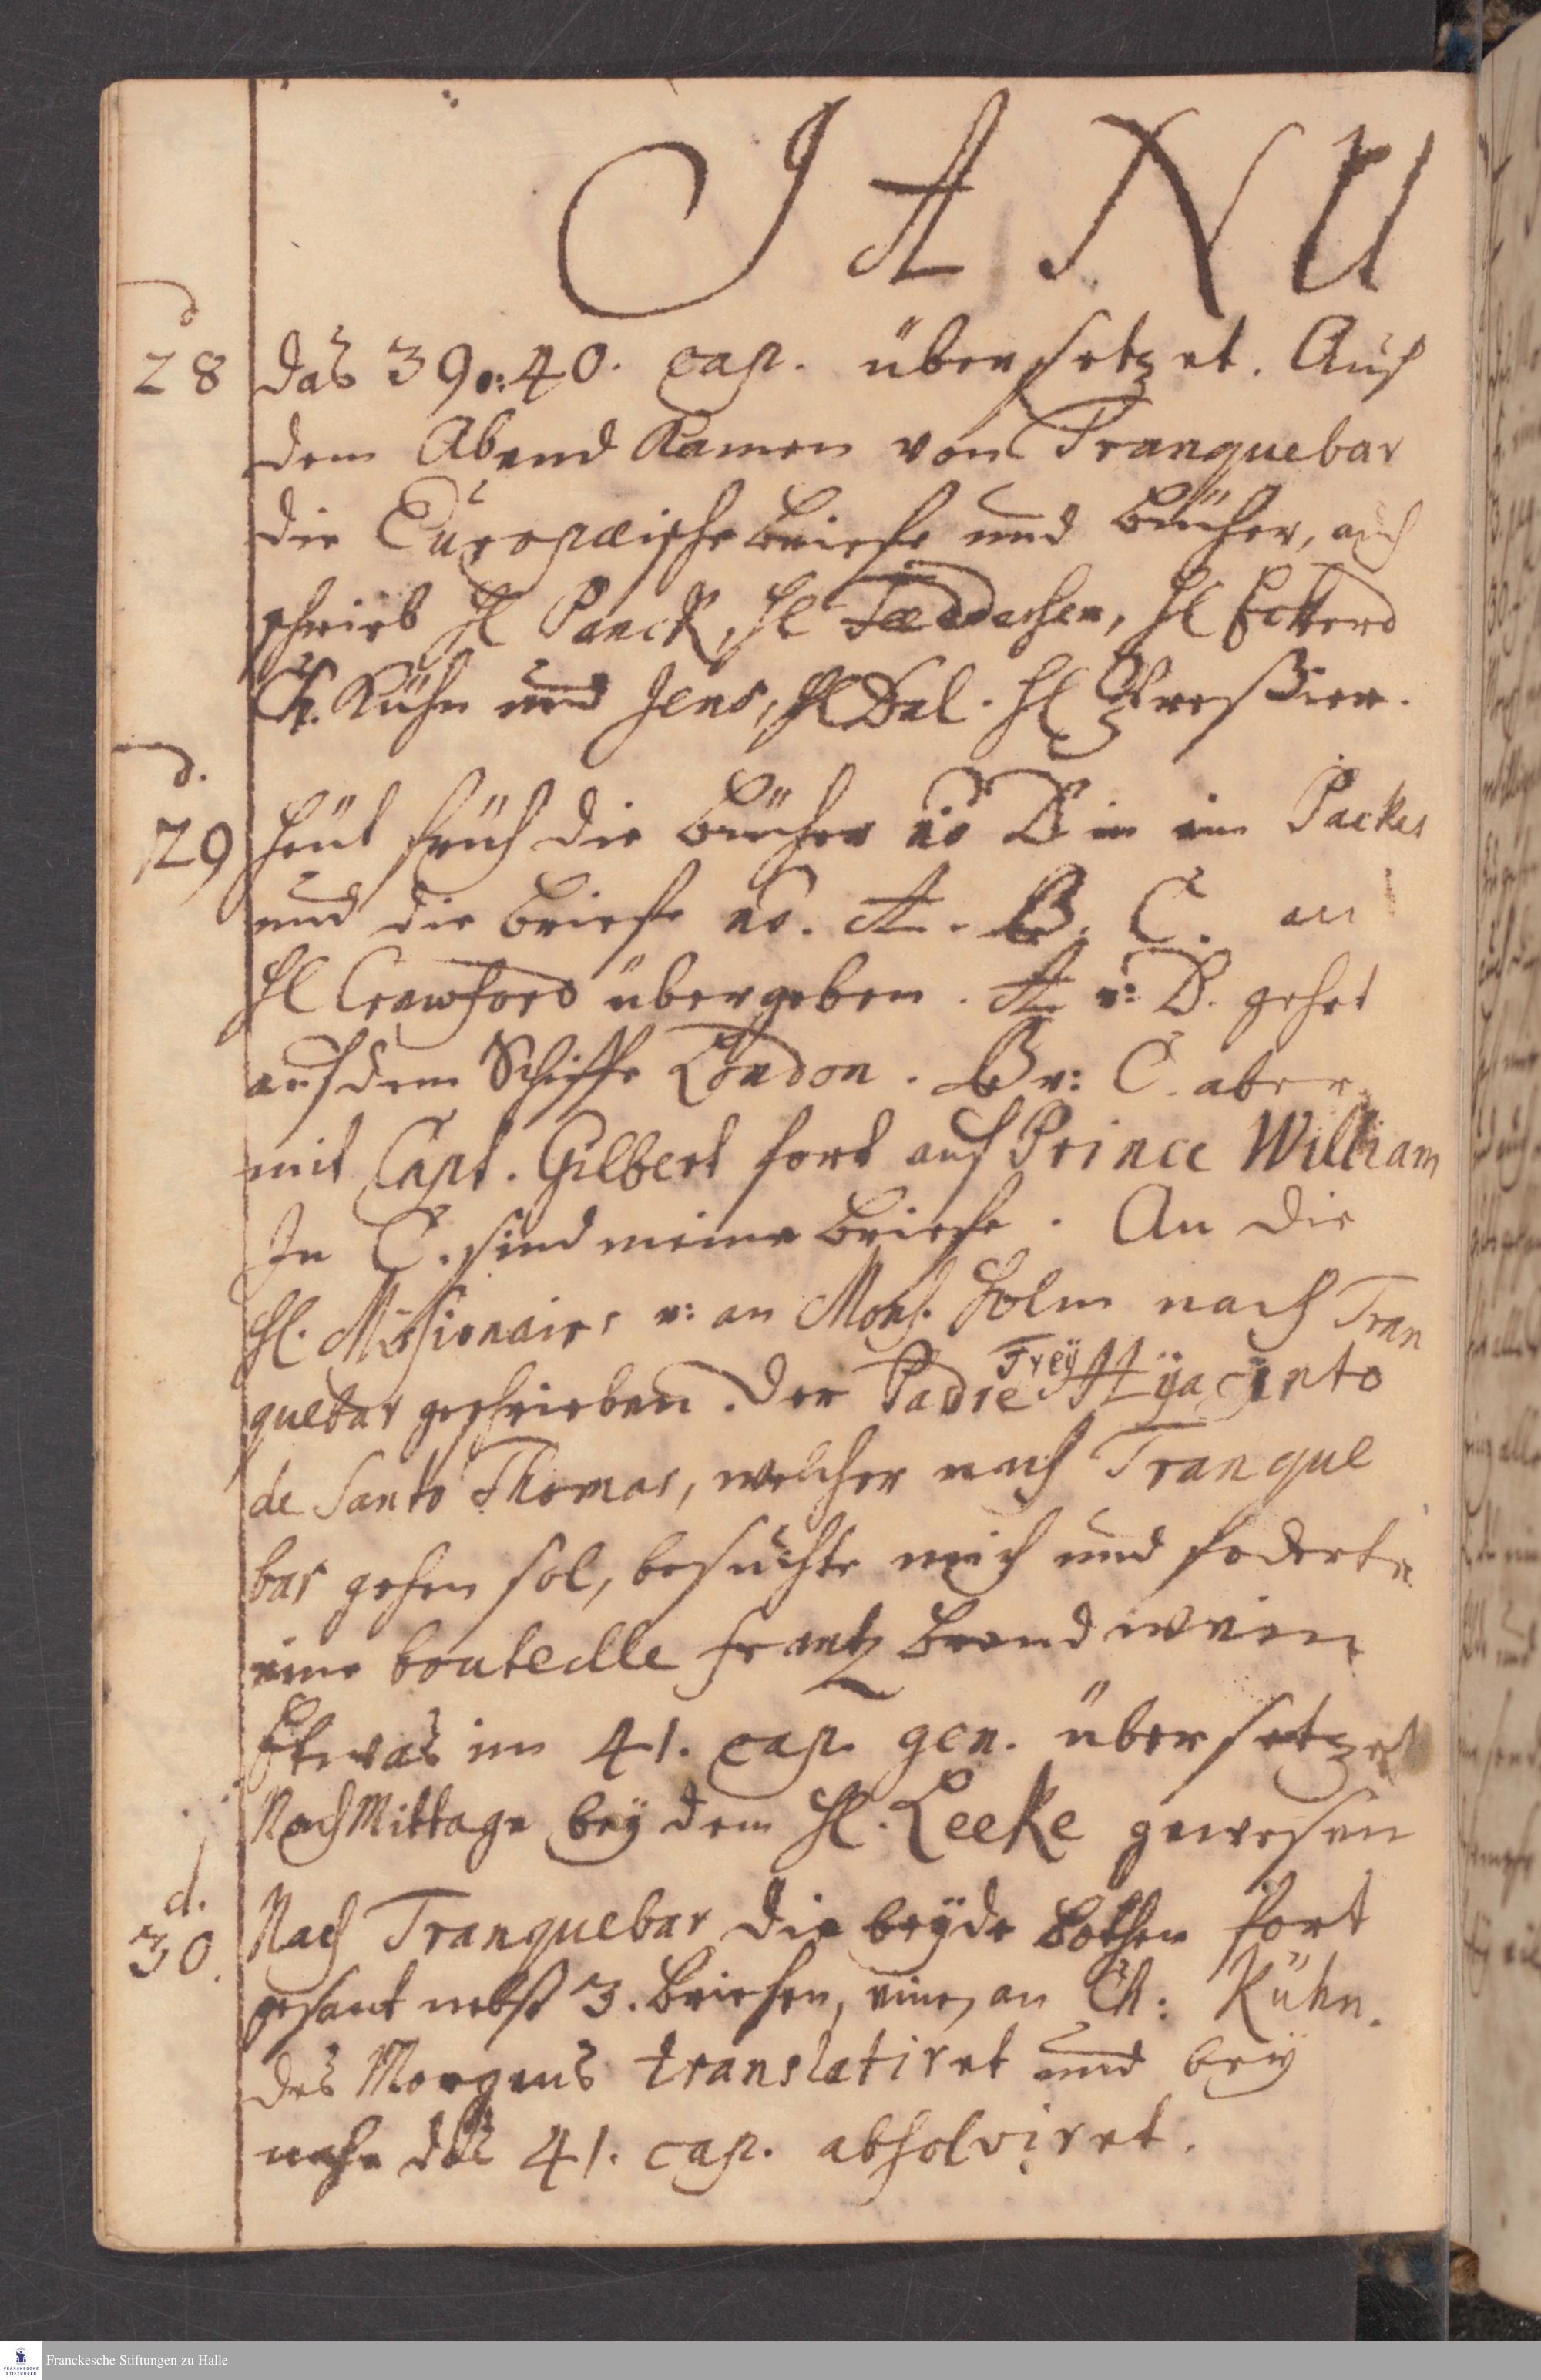 JANU
d
28 das 39 u: 40. cap. übersetzet. Auf
dem Abend kamen von Tranquebar
die Europæische Briefe und Bücher, auch
schrieb H Panck, H H Eckard
Ch. Kühn und Jens, H Dal. H Pressier.
d.
29 Heut früh die Bücher no D in ein Packet
und die Briefe no. A. B. C. an
H Crawford übergeben. A u: D. gehet
auf dem Schiffe London. B u: C. aber
mit Capt. Gilbert fort auf Prince William
In C. sind meine Briefe. An die
H. Missionairs u: an Mons. Holm nach Tran
quebar geschrieben. Der Padre Frey Hÿacÿnto
de Santo Thomas, welcher nach Tranque
bar gehen sol, besuchte mich und foderte
eine bouteille Frantz Brandwein
Etwas im 41. cap. gen. übersetzet
NachMittage beÿ dem H. Leeke gewesen
d.
30. Nach Tranquebar die beÿde Bothen fort
gesant nebst 3. Briefen, einen an Ch: Kühn.
des Morgens translatiret und beÿ
nahe das 41. cap. absolviret.
Franckesche Stiftungen zu Halle